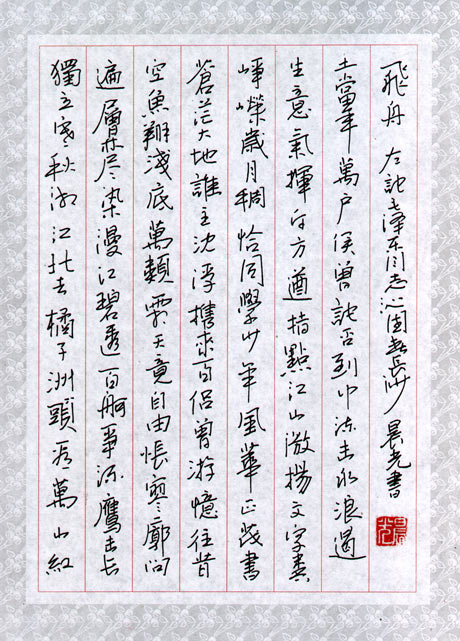 獨立寒秋湘江北去橘子洲頭看萬山紅
遍層林尽染漫江碧透百舸爭流鷹击長
空魚翔淺底萬類霜天竟自由悵寥廓問
蒼茫大地誰主沈浮攜來百侣曾游憶往昔
崢嶸歲月稠恰同學少年風華正茂書
生意氣揮斥方遒指點江山激揚文字糞
土當年萬戶侯曾記否到中流击水浪遏
飛舟 左詞毛澤东同志沁園春長沙 晨光書